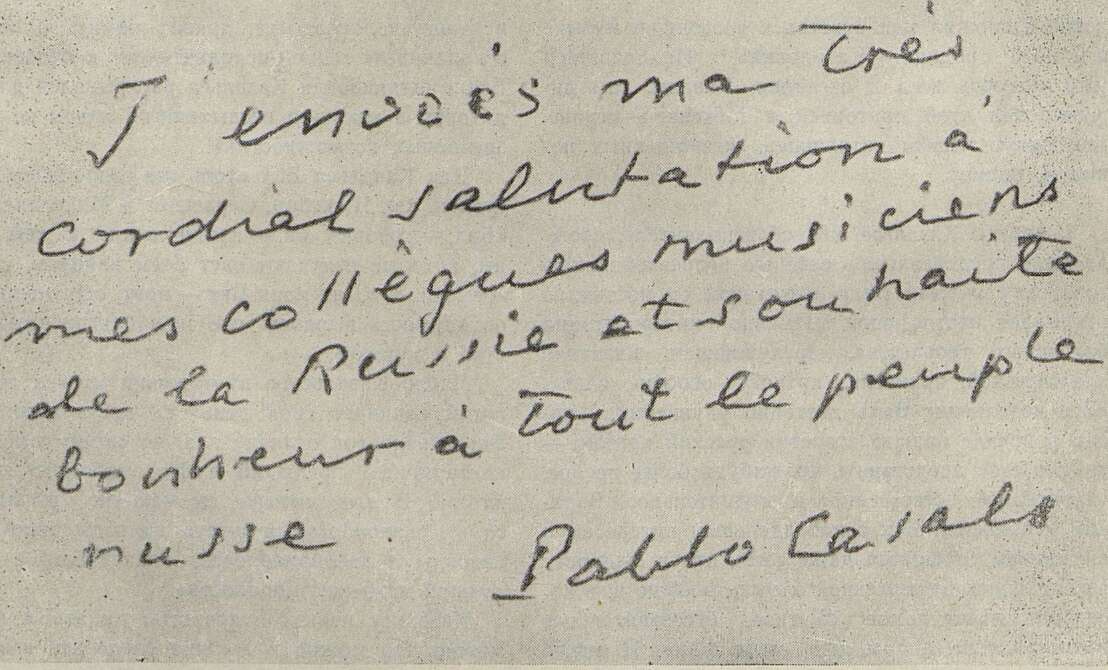 J'envoiés ma très
cordial salutation à
mes collègues musiciens
de la Russie et souhaite
bonheur à tout le peuple
russe.
Pablo Casals